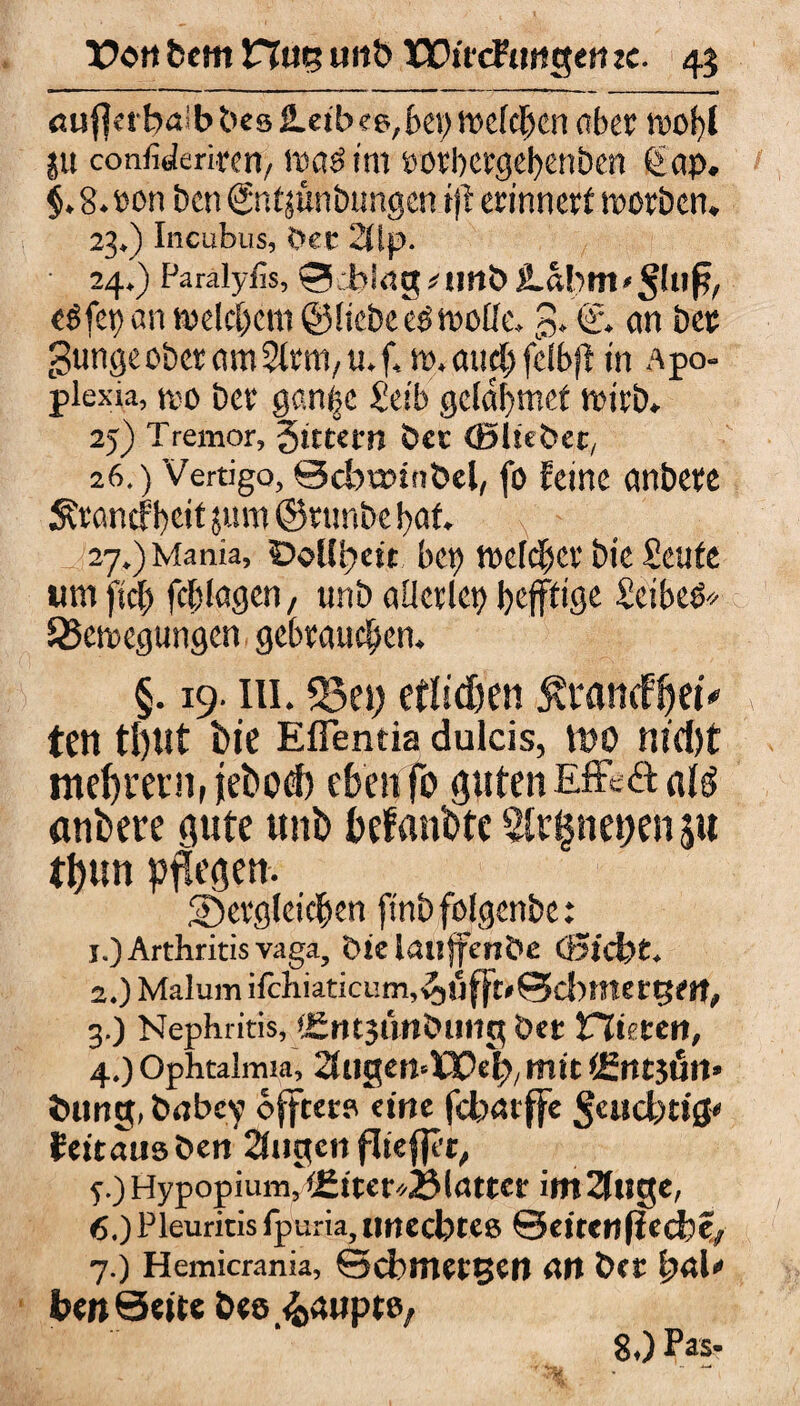 Von dem Nutz und Wirckungen ꝛc. 43
ausserhalb des Leibes, bey welchen aber wohl
zu consideriren, was im vorhergehenden Cap.
§. 8. von den Entzündungen ist erinnert worden.
23.) Incubus, der Alp.
24.) Paralysis, Schlag- und Lähm-Fluß,
es sey an welchem Gliede es wolle. Z. E. an der
Zunge oder am Arm, u. s. w. auch selbst in Apo-
plexia, wo der gantze Leib gelähmet wird.
25) Tremor, Zittern der Glieder,
26.) Vertigo, Schwindel, so keine andere
Kranckheit zum Grunde hat.
27.) Mania, Dollheit bey welcher die Leute
um sich schlagen, und allerley hefftige Leibes-
Bewegungen gebrauchen.
§. 19. III. Bey etlichen Kranckhei-
ten thut die Essentia dulcis, wo nicht
mehrern, jedoch eben so guten Effect als
andere gute und bekandte Artzneyen zu
thun pflegen.
Dergleichen sind folgende:
1.) Arthritis vaga, die lauffende Gicht.
2.) Malum ischiaticum, Hüfft-Schmertzen,
3.) Nephritis, Entzündung der Nieren,
4.) Ophtalmia, Augen-Weh, mit Entzün-
dung, dabey öffters eine scharffe Feuchtig-
keit aus den Augen fliesset,
5.) Hypopium, Eiter-Blatter im Auge,
6.) Pleuritis spuria, unechtes Seitenstechē,
7.) Hemicrania, Schmertzen an der hal-
ben Seite des Haupts,
8.) Pas-